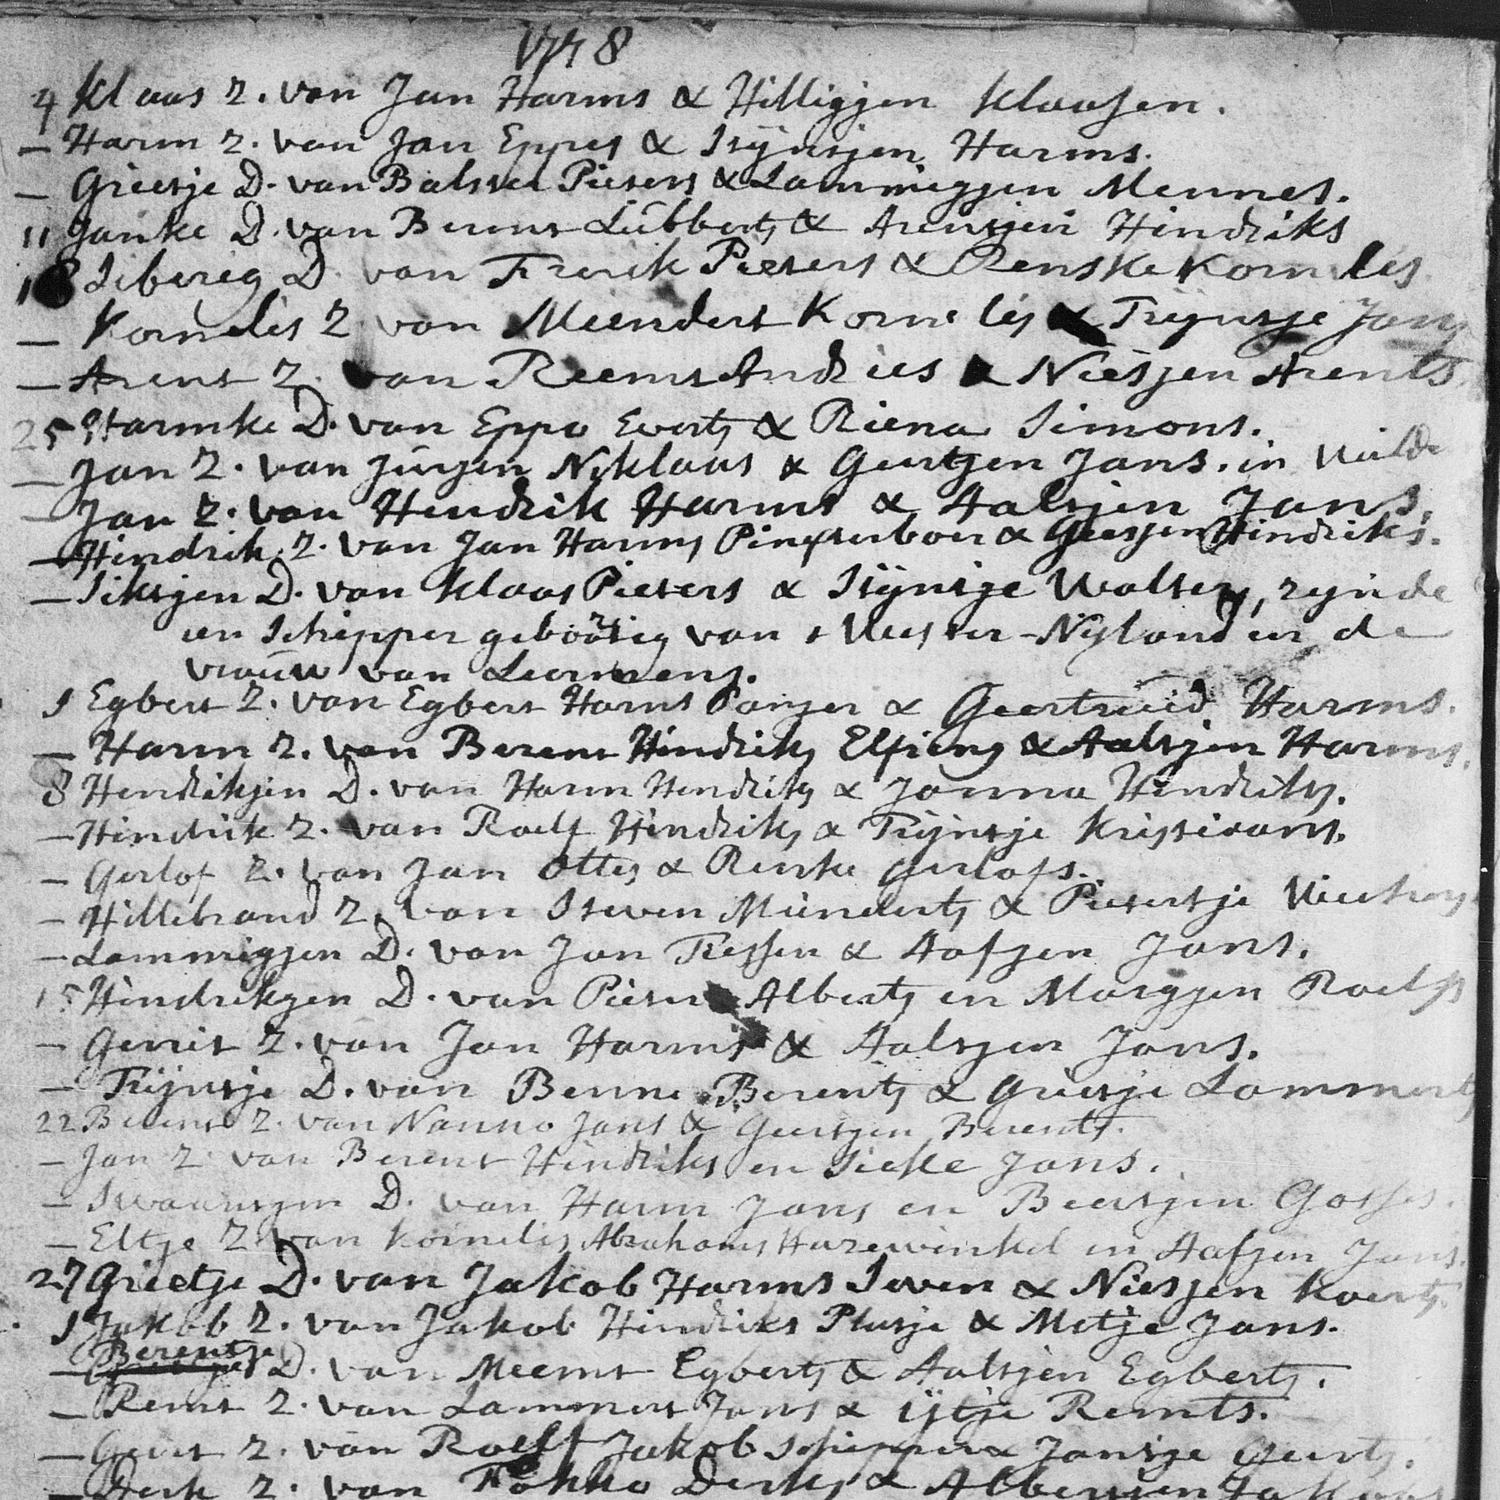 1748
4 Klaas Z. van Jan Harms & Hilligjen Klaasen.
— Harm Z. van Jan Eppes & Stÿntjen Harms.
— Grietje D. van Balster Pieters & Lammiegjen Mennes.
11 Janke D. van Berent Lubberts & Arentjen Hindriks
18 Siberig D. van Frerik Pieters & Renske Kornelis
— Kornelis Z. van Meendert Kornelis & Trijntje Jans
— Arent Z. van Reemt Andries & Niesjen Arents
25 Harmke D. van Eppo Everts & Riena Simons.
— Jan Z. van Jurjen Niklaas & Geertjen Jans. in
— Jan Z. van Hendrik Harms & Aaltjen Jans.
— Hindrik Z. van Jan Harms Pinxterboer & Geesjen Hindriks.
— Siktjen D. van Klaas Pieters & Stÿntje Wolters, zynde
een Schipper geboortig van Nyland en de
vrouw van Leermens.
1 Egbert Z. van Egbert Harms Panjer & Geertruid Harms.
— Harm Z. van Berent Hindriks Elfring & Aaltjen Harms.
8 Hendrikjen D. van Harm Hendriks & Janna Hendriks.
— Hindrik Z. van Roelf Hindriks & Trijntje Kristiaans.
— Gerlof Z. van Jan Ottes & Renke Gerlofs.
— Hillebrand Z. van Steven Meinderts & Pietertje
— Lammigjen D. van Jan Tiessen & Aafjen Jans.
15 Hindrikjen D. van Pieter Alberts en Margjen Roelfs
— Gerrit Z. van Jan Harms & Aaltjen Jans.
— Trijntje D. van Benne Berents & Grietje Lammerts
22 Berent Z. van Nanno Jans & Geertjen Berents.
— Jan Z. van Berent Hindriks en Sieke Jans.
— Swaantjen D. van Harm Jans en Beertjen Gosses.
— Eltje Z. van Kornelis Abrahams Hazewinkel en Aafjen Jans.
27 Grietje D. van Jakob Harms Seven & Niesjen Koerts.
1 Jakob Z. van Jakob Hindriks Plusje & Metje Jans.
— Berentje D. van Meemt Egberts & Aaltjen Egberts.
— Remt Z. van Lammert Jans & ijtje Remts.
— Geert Z. van Roelf Jakobs Schipper & Jantje Geerts.
— Derk Z. van Fokko Derks & Albertjen Jakobs